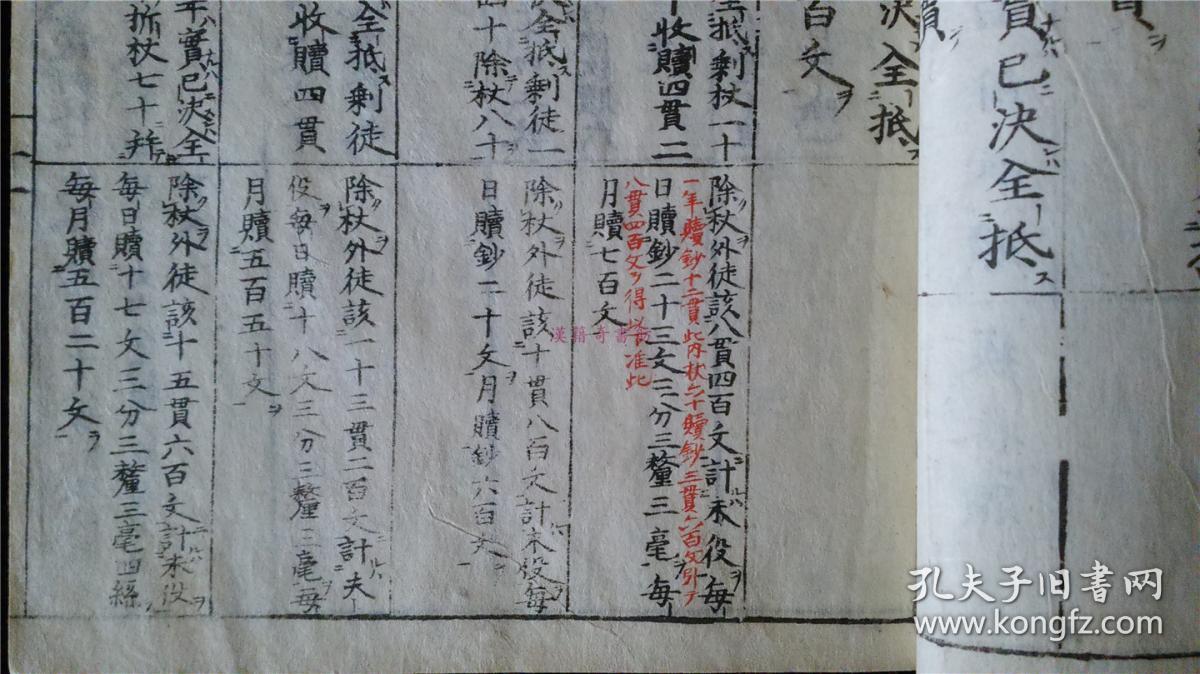 實已決全抵ス
決全抵
百文ヲ
全抵剩杖一十
收贖四貫二
除杖外徒該八貫四百文計未役每
一年贖鈔十二貫此內杖六十贖鈔三貫六百文引テ
日贖鈔二十三文三分三釐三毫每
八貫四百文ヲ得以下准此
月贖七百文
全抵剩徒一
四十除杖八十
除杖外徒該十貫八百文計未役每
日贖鈔二十文月贖鈔六百文
全抵剩徒
收贖四貫
除杖外徒該一十三貫二百文計夫
役每日贖十八文三分三釐三毫每
月贖五百五十文
年實已決全
折杖七十并
除杖外徒該十五貫六百文計未役
每日贖十七文三分三釐三毫四絲
每月贖五百二十文ヲ
漢籍奇書
孔夫子旧书网
www.kongfz.com